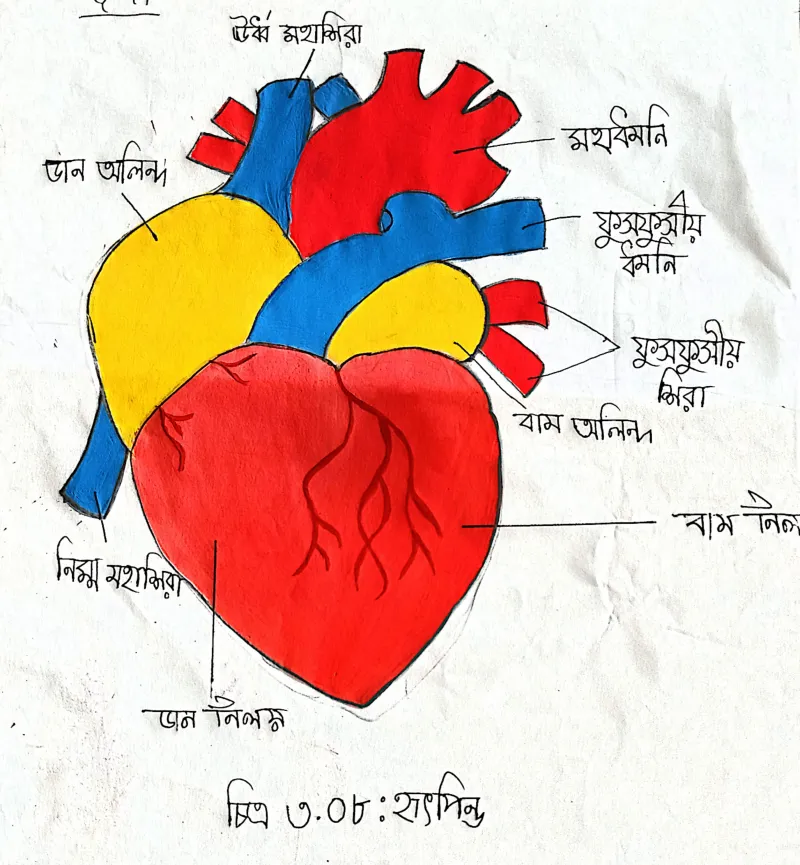 ঊর্ধ্ব মহাশিরা
মহাধমনি
ডান অলিন্দ
ফুসফুসীয়
ধমনি
ফুসফুসীয়
শিরা
বাম অলিন্দ
বাম নিল
নিম্ন মহাশিরা
ডান নিলয়
চিত্র ৩.০৮ : হৃৎপিন্ড